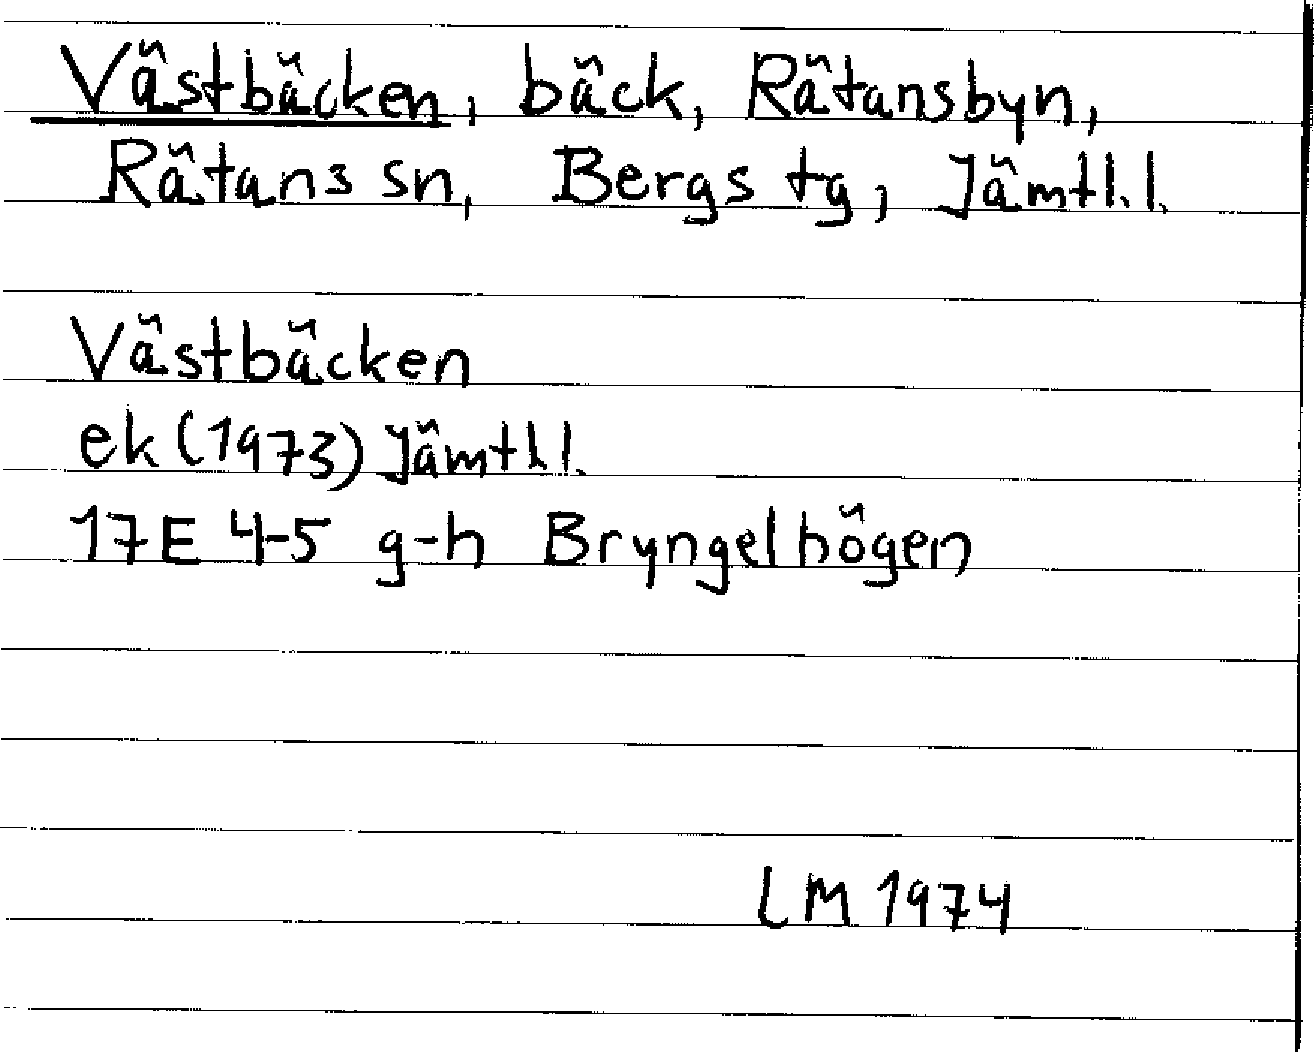 Västbäcken, bäck, Rätansbyn,
Rätans sn, Bergs tg, Jämtl.l.
Västbäcken
ek (1973) Jämtl.l.
17E 4-5 g-h Bryngelhögen
LM 1974